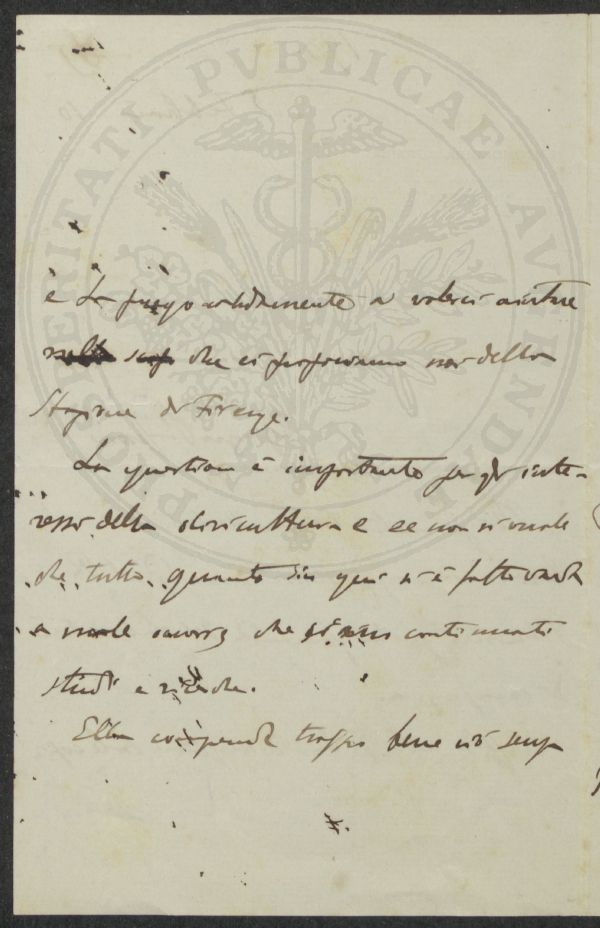 POSTERITATI PVBLICAE AVVNDAE
e La prego caldamente a volerci aiutare
che ci proponiamo noi della
Stazione di Firenze.
La question è importante per gli inte-
ressi della olivicultura e se non si vuole
che tutto quanto sin qui si è fatto vada
a male occorre che si sieno continuati
studi e ricerche.
Ella comprende troppo bene ciò senza